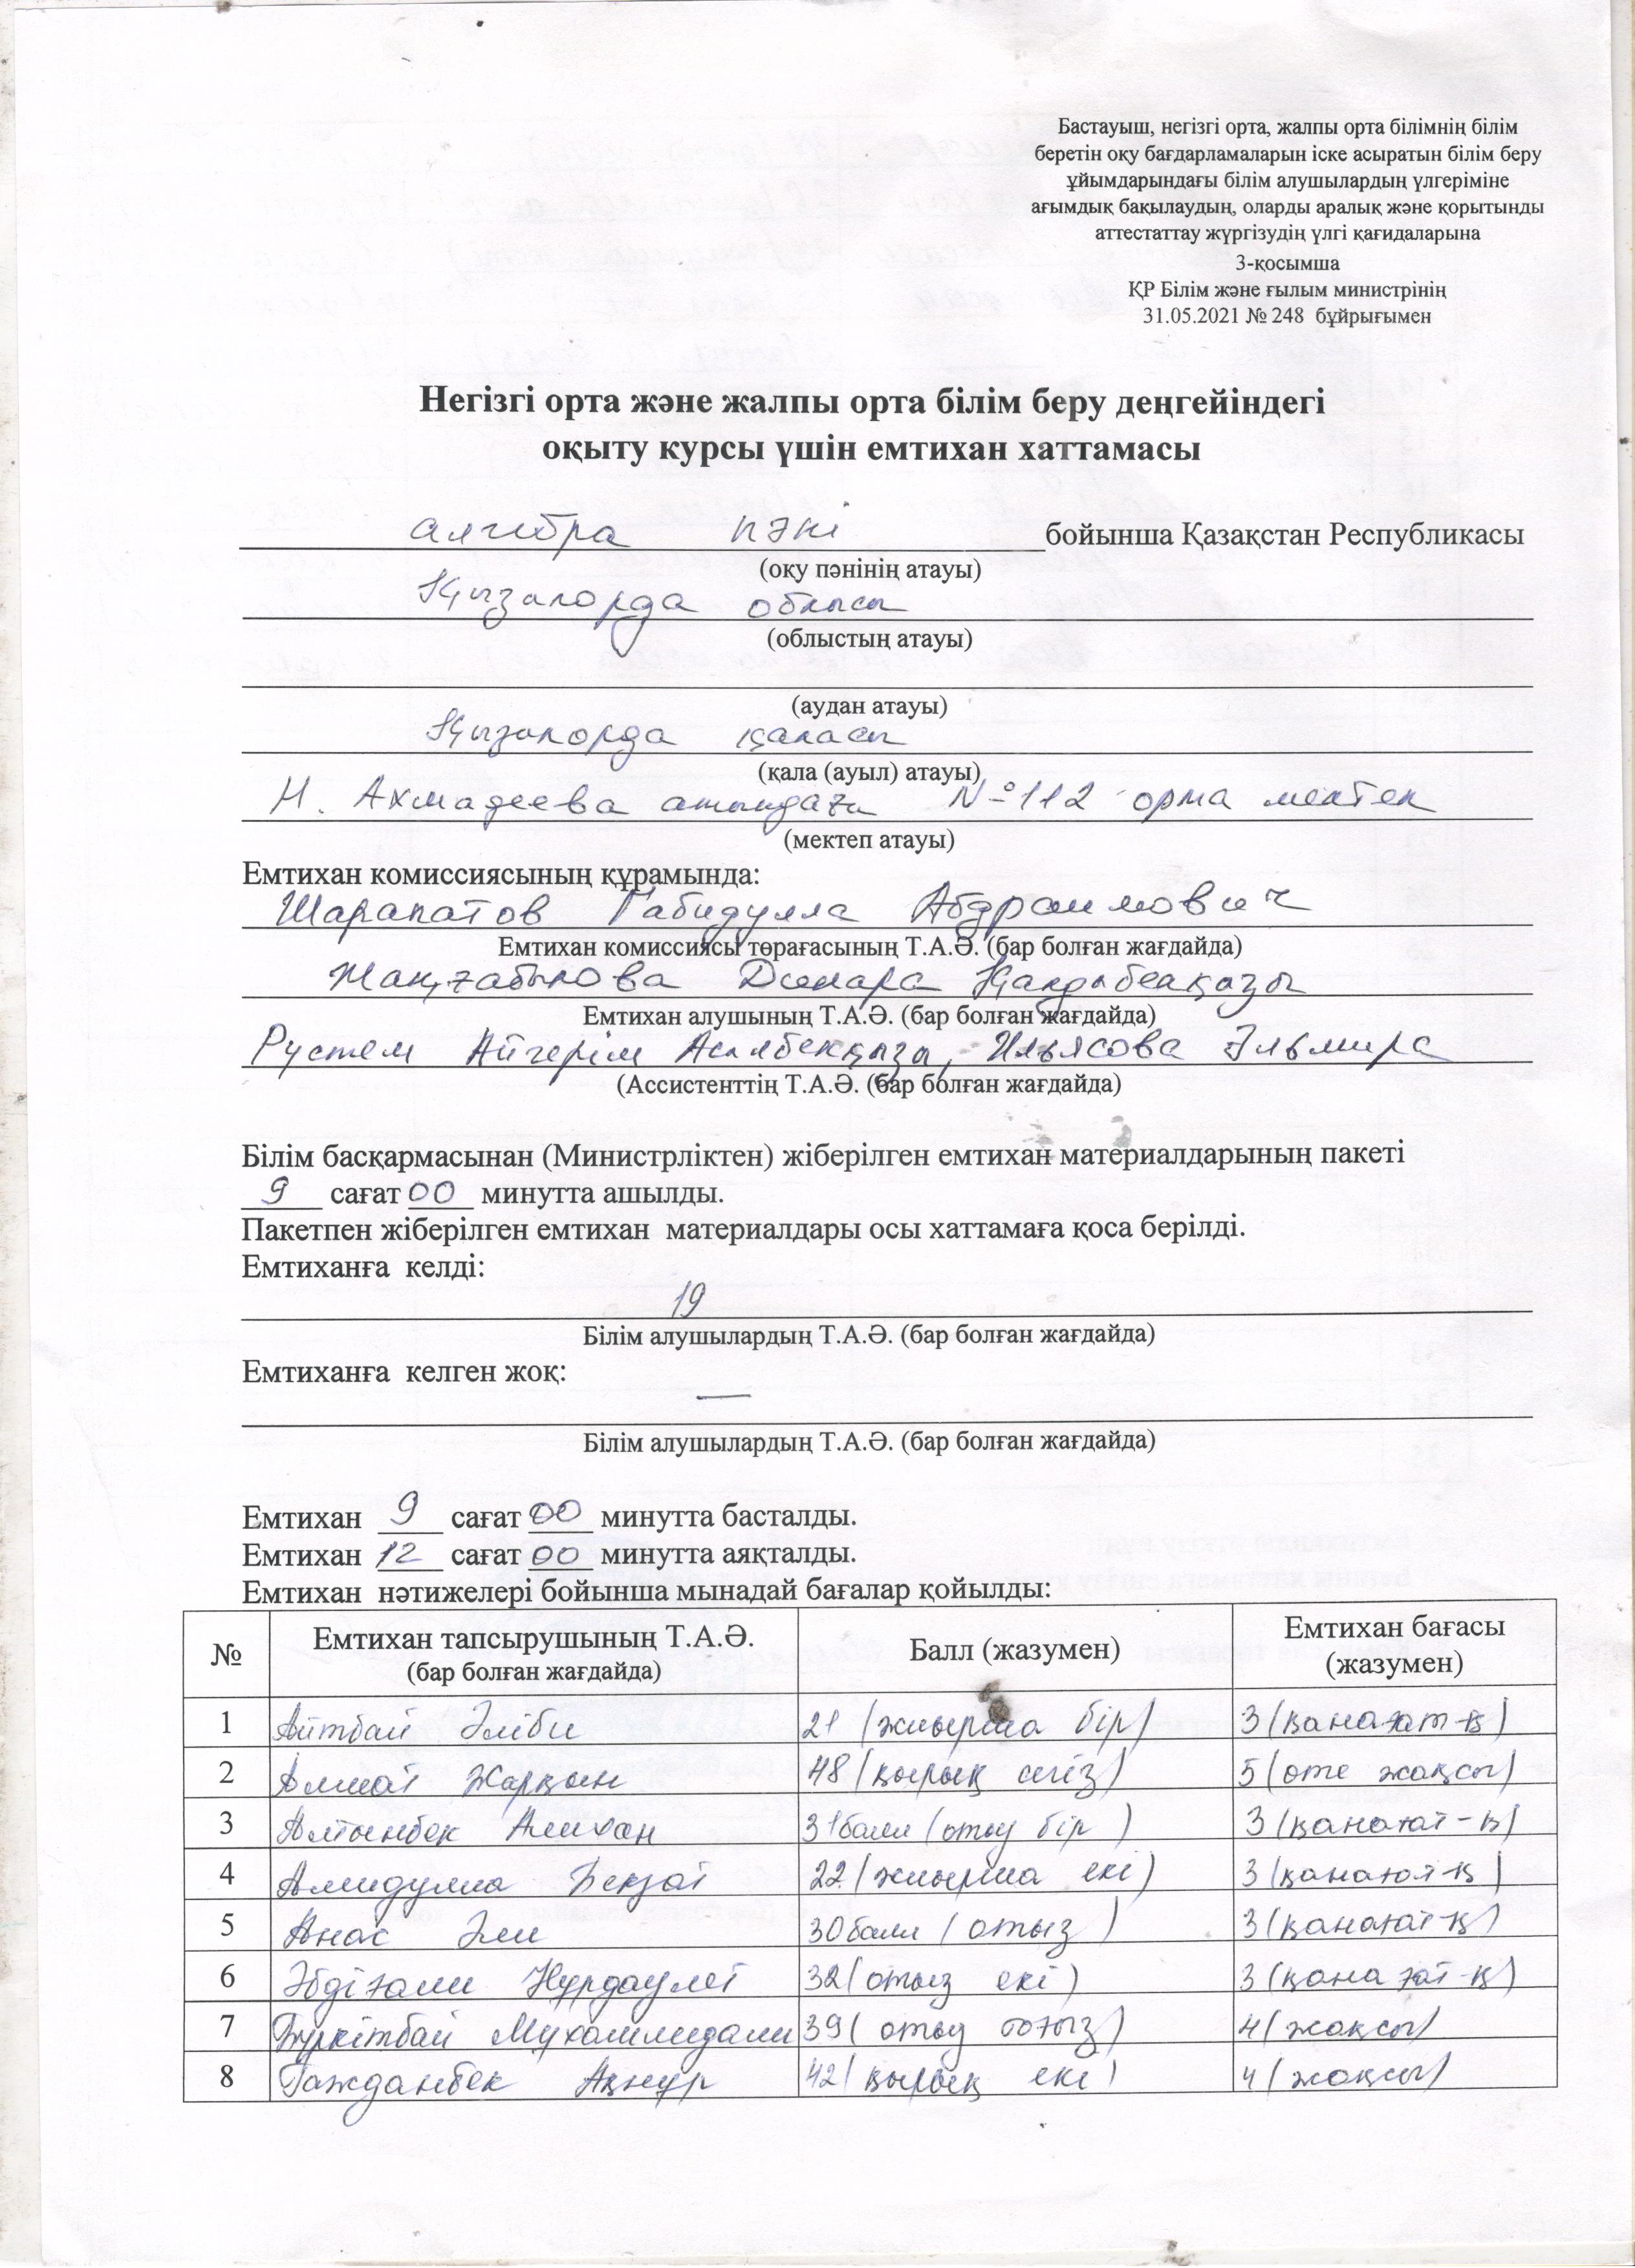 Бастауыш, негізгі орта, жалпы орта білімнің білім
беретін оқу бағдарламаларын іске асыратын білім беру
ұйымдарындағы білім алушылардың үлгеріміне
ағымдық бақылаудың, оларды аралық және қорытынды
аттестаттау жүргізудің үлгі қағидаларына
3-қосымша
ҚР Білім және ғылым министрінің
31.05.2021 № 248 бұйрығымен
Негізгі орта және жалпы орта білім беру деңгейіндегі
оқыту курсы үшін емтихан хаттамасы
алгебра пәні бойынша Қазақстан Республикасы
(оқу пәнінің атауы)
Қызылорда облысы
(облыстың атауы)
(аудан атауы)
Қызылорда қаласы
(қала (ауыл) атауы)
Н. Ахмадеева атындағы №112 орта мектеп
(мектеп атауы)
Емтихан комиссиясының құрамында:
Шарапатов Габидулла Абдраимович
Емтихан комиссиясы төрағасының Т.А.Ә. (бар болған жағдайда)
Жаңғабылова Динара
Емтихан алушының Т.А.Ә. (бар болған жағдайда)
Рүстем Айгерім Асылбекқызы, Ильясова Эльмира
(Ассистенттің Т.А.Ә. (бар болған жағдайда)
Білім басқармасынан (Министрліктен) жіберілген емтихан материалдарының пакеті
9 сағат 00 минутта ашылды.
Пакетпен жіберілген емтихан материалдары осы хаттамаға қоса берілді.
Емтиханға келді:
19
Білім алушылардың Т.А.Ә. (бар болған жағдайда)
Емтиханға келген жоқ:
—
Білім алушылардың Т.А.Ә. (бар болған жағдайда)
Емтихан 9 сағат 00 минутта басталды.
Емтихан 12 сағат 00 минутта аяқталды.
Емтихан нәтижелері бойынша мынадай бағалар қойылды:
№ Емтихан тапсырушының Т.А.Ә. (бар болған жағдайда) Балл (жазумен) Емтихан бағасы (жазумен)
1 Айтбай Әліби 21 (жиырма бір) 3 (қанағат-қ)
2 Алмат Жарқын 48 (қырық сегіз) 5 (өте жақсы)
3 Алтынбек Алихан 31 балл (отыз бір) 3 (қанағат-қ)
4 Амидулла Бекзат 22 (жиырма екі) 3 (қанағат-қ)
5 Анас Әли 30 балл (отыз) 3 (қанағат-қ)
6 Әбдіғали Нұрдаулет 32 (отыз екі) 3 (қанағат-қ)
7 Бүркітбай Мухаммедали 39 (отыз тоғыз) 4 (жақсы)
8 Гажданбек Ақнұр 42 (қырық екі) 4 (жақсы)